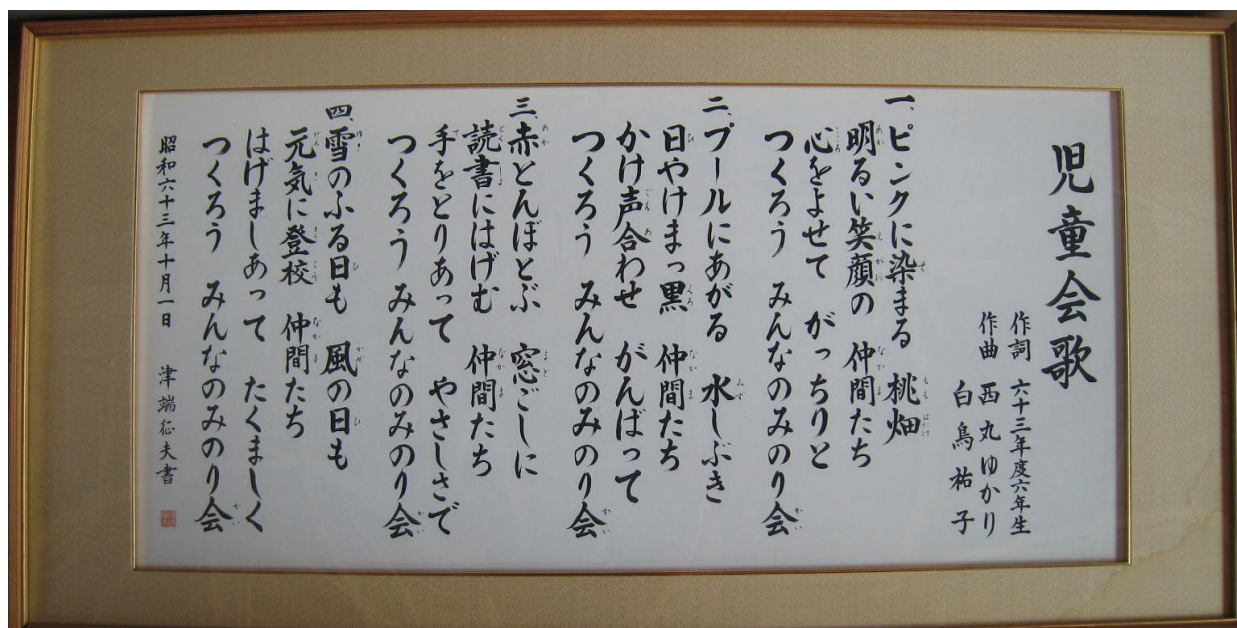 児童会歌
作詞 六十三年度六年生
作曲 西丸ゆかり
白鳥祐子
一、ピンクに染まる 桃畑
明るい笑顔の 仲間たち
心をよせて がっちりと
つくろう みんなのみのり会
二、プールにあがる 水しぶき
日やけまっ黒 仲間たち
かけ声合わせ がんばって
つくろう みんなのみのり会
三、赤とんぼとぶ 窓ごしに
読書にはげむ 仲間たち
手をとりあって やさしさで
つくろう みんなのみのり会
四、雪のふる日も 風の日も
元気に登校 仲間たち
はげましあって たくましく
つくろう みんなのみのり会
昭和六十三年十月一日 津端征夫書